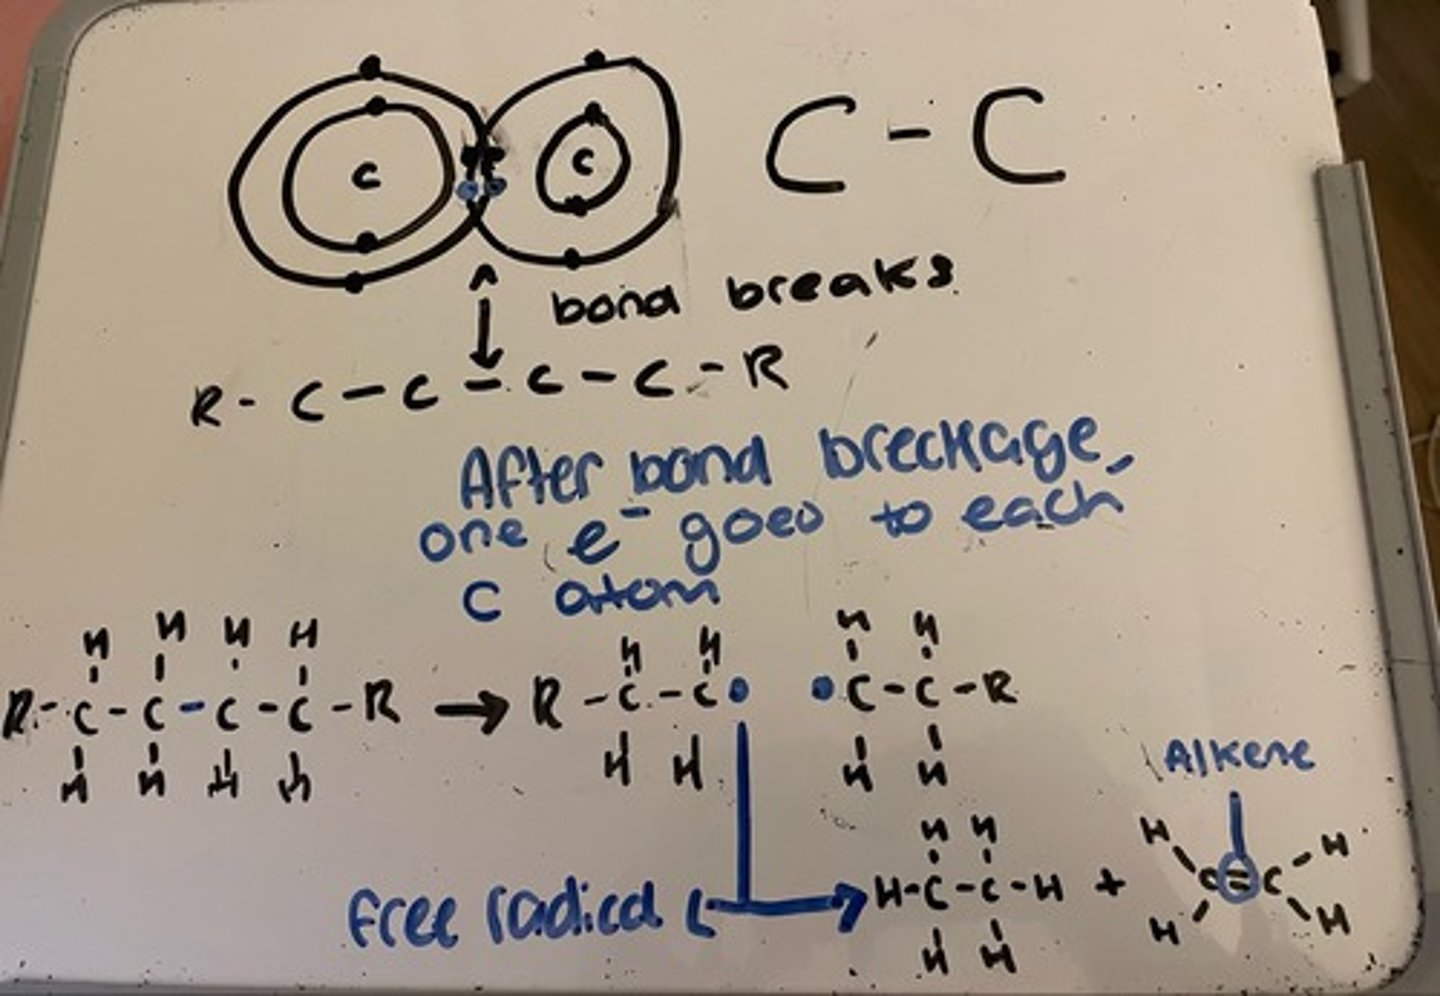 C C C - C
bond breaks
R - C - C - C - C - R
After bond breckage,
one e⁻ goes to each
C atom
H H H H H H H H
R - C - C - C - C - R → R - C - C • • C - C - R
H H H H H H H H
Alkene
H H H H
Free radical H - C - C - H + C = C
H H H H